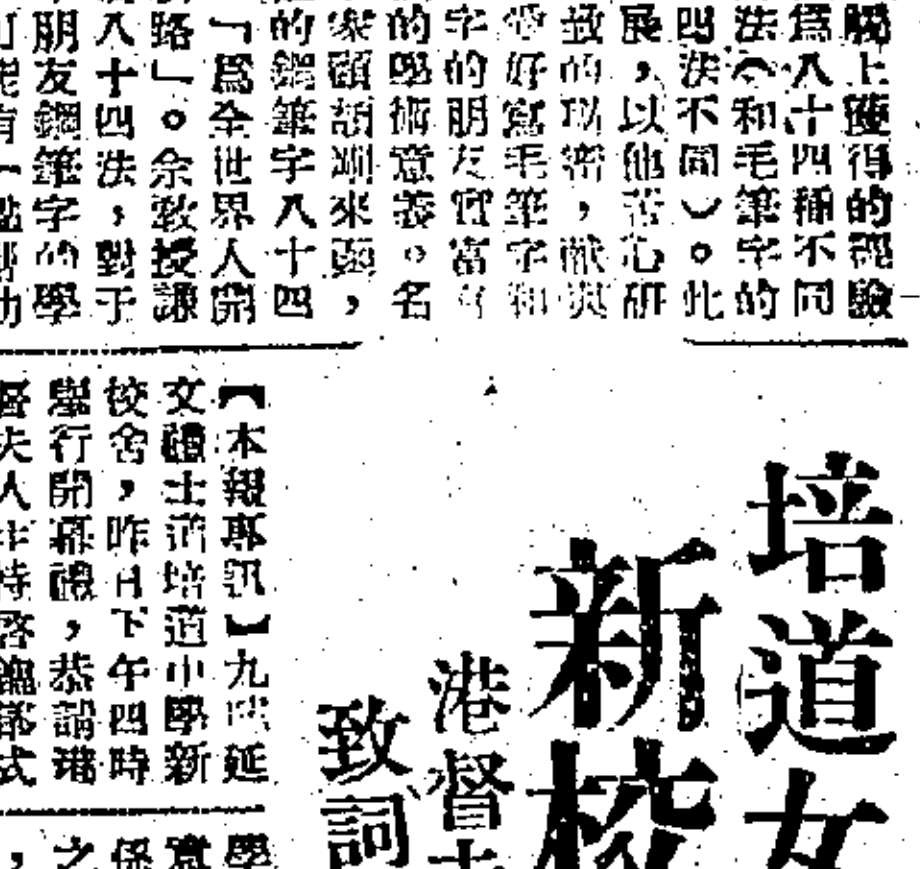 觸上獲得的經驗
爲八十四種不同
法(和毛筆字的
四法不同)。此
展,以他苦心研
致的功密,獻與
愛好寫毛筆字和
字的朋友實富有
的學術意義。名
家頤訓來函,
的鋼筆字八十四
「爲全世界人開
路」。余敎授謙
八十四法,對于
朋友鋼筆字的學
可能有一點
培道女
新校
港督夫
致詞
【本報專訊】九龍延
文禮士道培道中學新
校舍,昨日下午四時
舉行開幕禮,恭請港
督夫人主持啓鑰儀式
學
寬
係
之
,